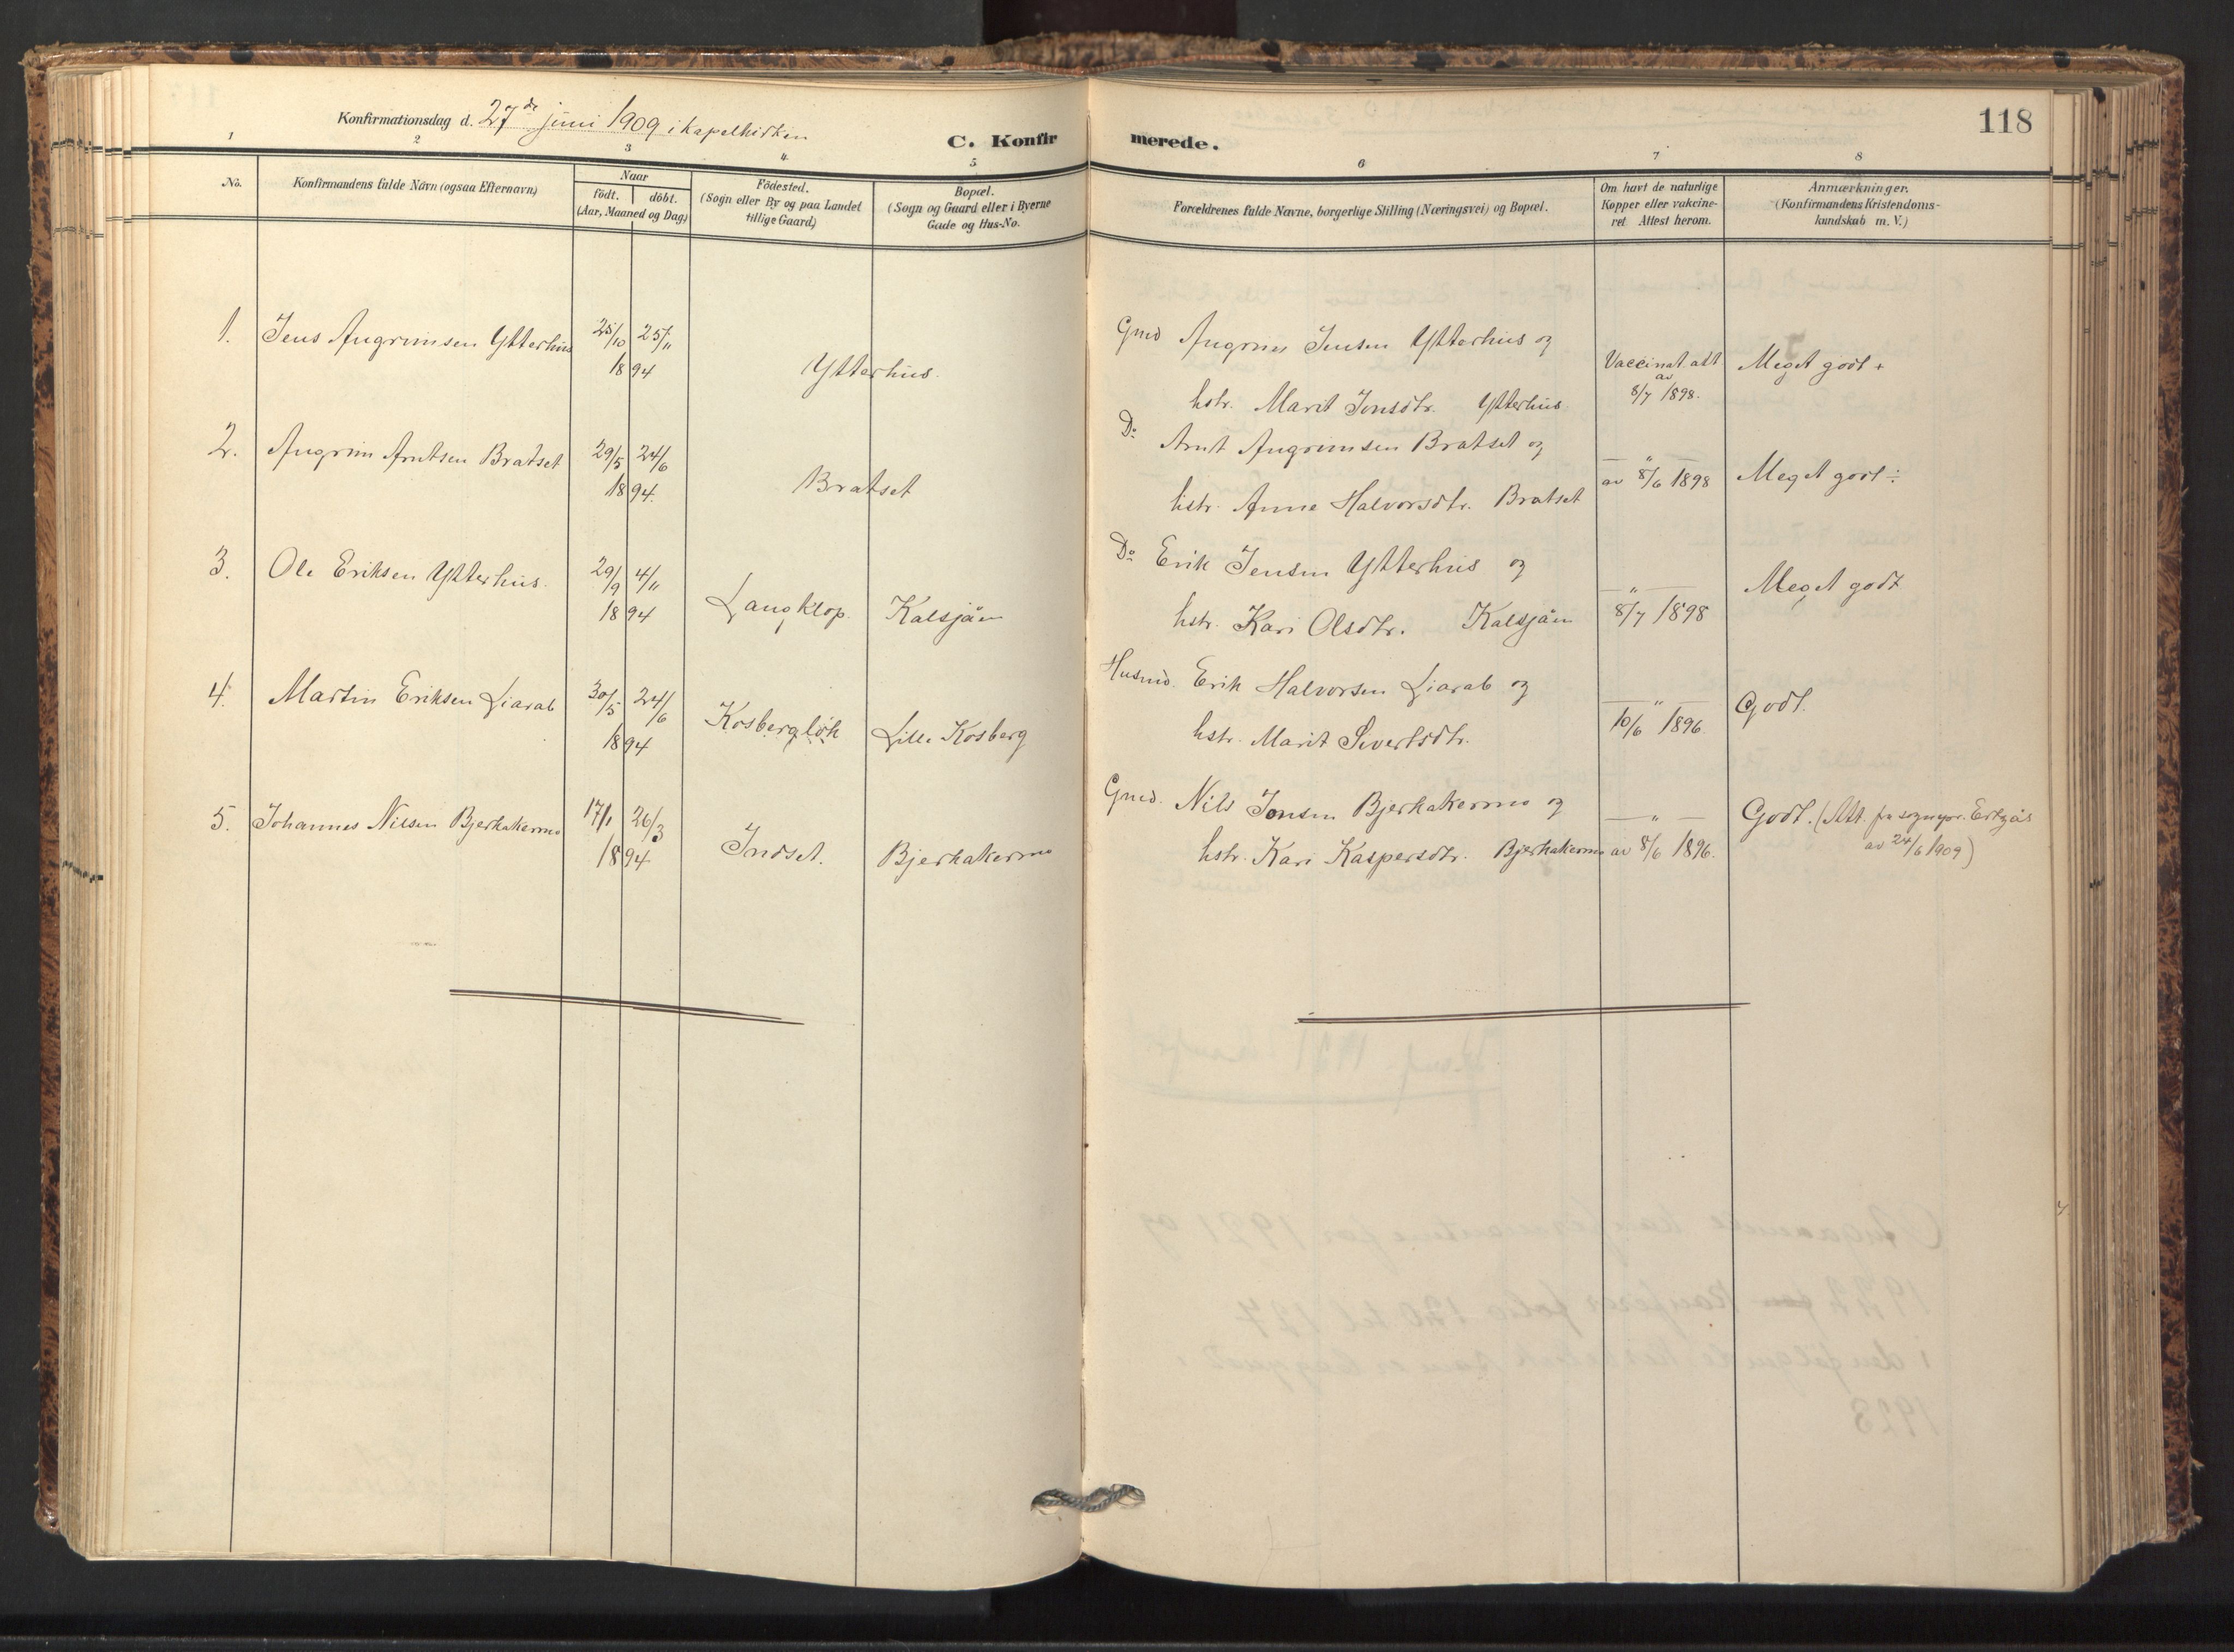 118
Konfirmationsdag d. 27de juni 1909 i kapelkirken
C. Konfirmerede.
1 2 3 4 5 6 7 8
No.
Konfirmandens fulde Navn (ogsaa Efternavn)
Naar
födt. döbt.
(Aar, Maaned og Dag)
Födested.
(Sogn eller By og paa Landet
tillige Gaard)
Bopæl.
(Sogn og Gaard eller i Byerne
Gade og Hus-No.
Forældrenes fulde Navne, borgerlige Stilling (Næringsvei) og Bopæl.
Om havt de naturlige
Kopper eller vakcine-
ret. Attest herom.
Anmærkninger.
(Konfirmandens Kristendoms-
kundskab m. V.)
1. Jens Angrimsen Ytterhus 25/10 25/11 Gmd Angrim Jensen Ytterhus og
1894 Ytterhus. Vaccinat. att Meget godt +
hstr. Marit Jonsdtr. Ytterhus av 8/7 1898.
2. Angrim Arntsen Bratset 29/5 24/6 Do Arnt Angrimsen Bratset og
1894. Bratset — " — av 8/6 1898 Meget godt ÷
hstr. Anne Halvorsdtr. Bratset
3. Ole Eriksen Ytterhus. 29/9 4/11 Do Erik Jensen Ytterhus og — " — Meget godt
1894 Langklop. Kalsjåen hstr. Kari Olsdtr. Kalsjåen 8/7 1898
4. Martin Eriksen Liarab 30/5 24/6 Husmd. Erik Halvorsen Liarab og — " — Godt.
1894 Kosbergløk Lille Kosberg hstr. Marit Sivertsdtr. 10/6 1896.
5. Johannes Nilsen Bjerkakermo 17/1 26/3 Gmd. Nils Jonsen Bjerkakermo og — " — Godt. (Att. fra sognepr.
1894 Indset. Bjerkakermo hstr. Kari Kaspersdtr. Bjerkakermo av 8/6 1896. av 24/6 1909)